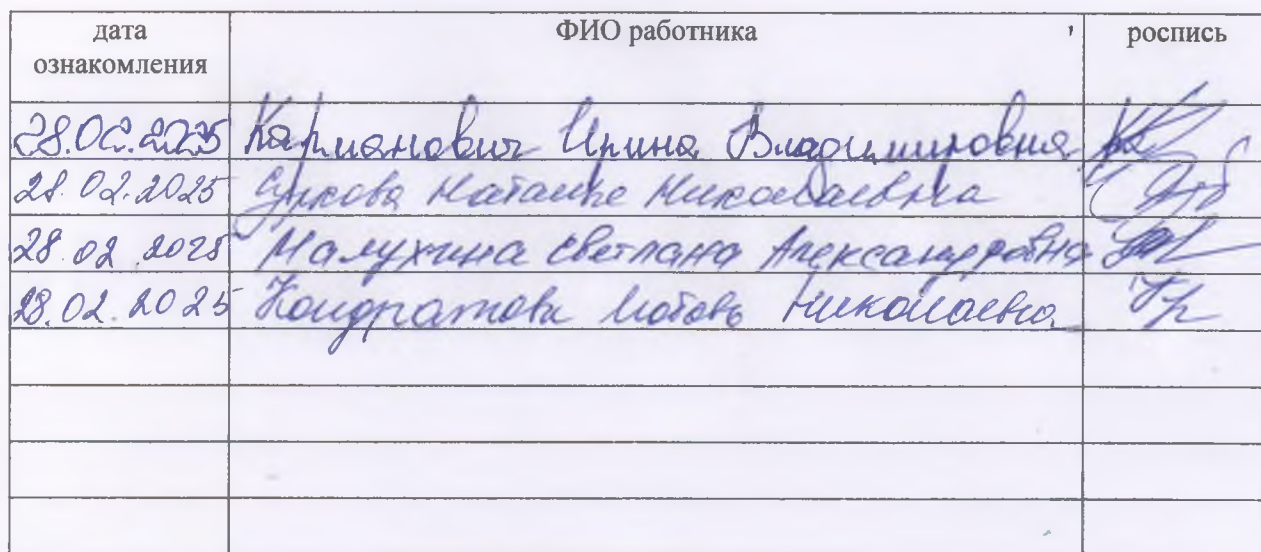 дата ознакомления ФИО работника роспись
28.02.2025 Карманович Ирина Владимировна
28.02.2025 Суркова Наталья Николаевна
28.02.2025 Малухина Светлана Александровна
28.02.2025 Кондратова Любовь Николаевна